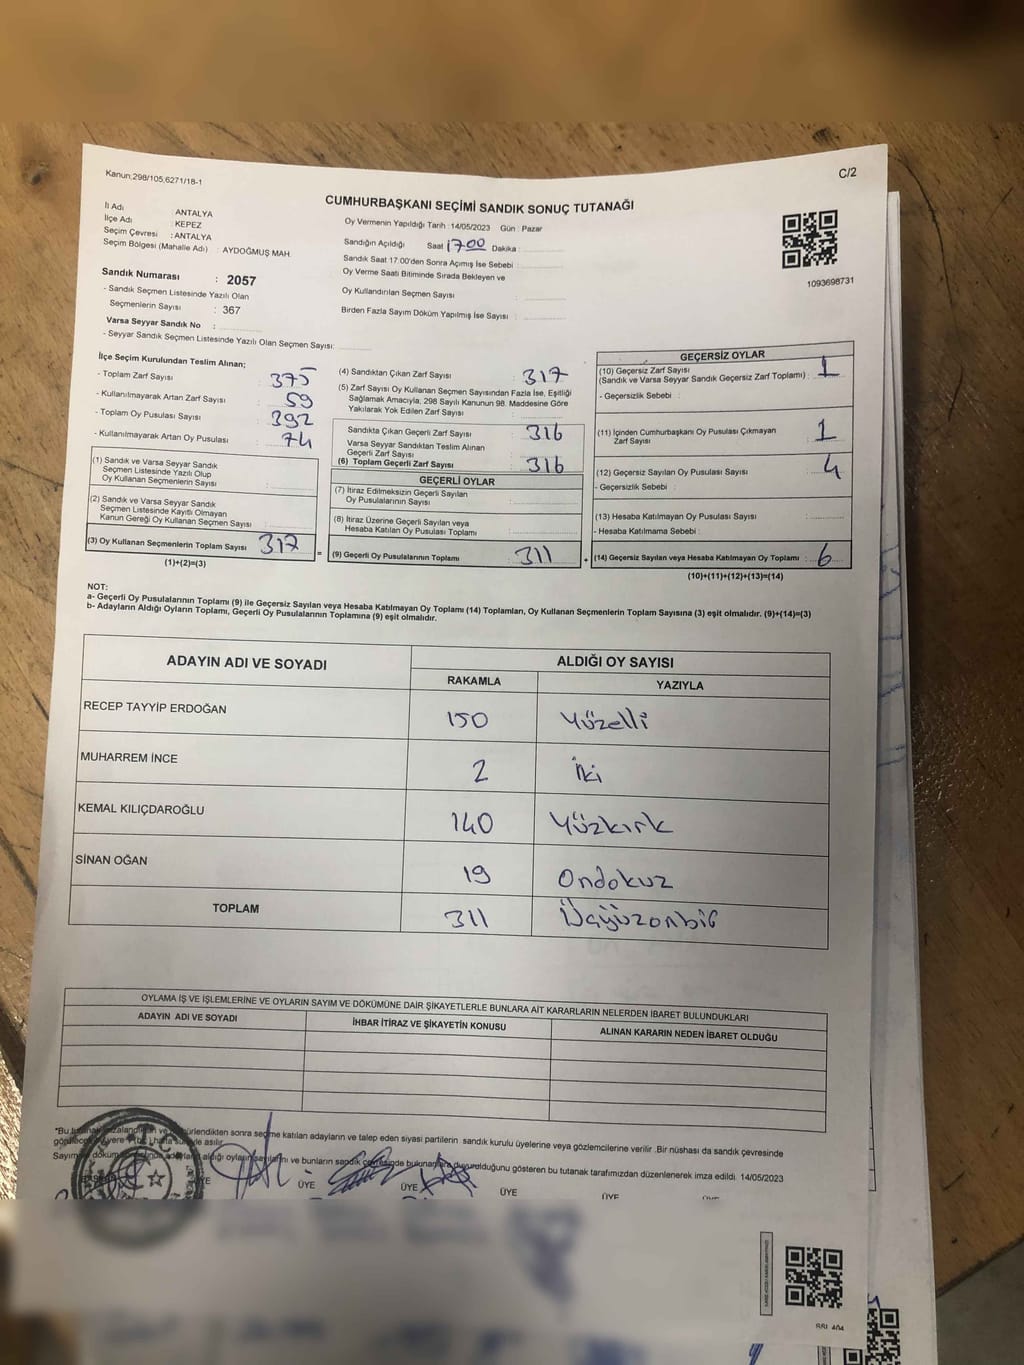 Kanun;298/105,6271/18-1
C/2
CUMHURBAŞKANI SEÇİMİ SANDIK SONUÇ TUTANAĞI
İl Adı : ANTALYA
İlçe Adı : KEPEZ
Seçim Çevresi : ANTALYA
Seçim Bölgesi (Mahalle Adı) : AYDOĞMUŞ MAH.
Sandık Numarası : 2057
- Sandık Seçmen Listesinde Yazılı Olan
Seçmenlerin Sayısı : 367
Varsa Seyyar Sandık No :
- Seyyar Sandık Seçmen Listesinde Yazılı Olan Seçmen Sayısı:
Oy Vermenin Yapıldığı Tarih : 14/05/2023 Gün : Pazar
Sandığın Açıldığı Saat 17.00 Dakika :
Sandık Saat 17:00'den Sonra Açımış İse Sebebi :
Oy Verme Saati Bitiminde Sırada Bekleyen ve
Oy Kullandırılan Seçmen Sayısı :
Birden Fazla Sayım Döküm Yapılmış İse Sayısı :
1093698731
İlçe Seçim Kurulundan Teslim Alınan;
- Toplam Zarf Sayısı : 375
- Kullanılmayarak Artan Zarf Sayısı : 59
- Toplam Oy Pusulası Sayısı : 392
- Kullanılmayarak Artan Oy Pusulası : 74
(1) Sandık ve Varsa Seyyar Sandık
Seçmen Listesinde Yazılı Olup
Oy Kullanan Seçmenlerin Sayısı :
(2) Sandık ve Varsa Seyyar Sandık
Seçmen Listesinde Kayıtlı Olmayan
Kanun Gereği Oy Kullanan Seçmen Sayısı :
(3) Oy Kullanan Seçmenlerin Toplam Sayısı : 317
(1)+(2)=(3)
(4) Sandıktan Çıkan Zarf Sayısı : 317
(5) Zarf Sayısı Oy Kullanan Seçmen Sayısından Fazla İse, Eşitliği
Sağlamak Amacıyla, 298 Sayılı Kanunun 98. Maddesine Göre
Yakılarak Yok Edilen Zarf Sayısı :
Sandıkta Çıkan Geçerli Zarf Sayısı : 316
Varsa Seyyar Sandıktan Teslim Alınan
Geçerli Zarf Sayısı :
(6) Toplam Geçerli Zarf Sayısı : 316
GEÇERLİ OYLAR
(7) İtiraz Edilmeksizin Geçerli Sayılan
Oy Pusulalarının Sayısı :
(8) İtiraz Üzerine Geçerli Sayılan veya
Hesaba Katılan Oy Pusulası Toplamı :
= (9) Geçerli Oy Pusulalarının Toplamı : 311
GEÇERSİZ OYLAR
(10) Geçersiz Zarf Sayısı
(Sandık ve Varsa Seyyar Sandık Geçersiz Zarf Toplamı) : 1
- Geçersizlik Sebebi :
(11) İçinden Cumhurbaşkanı Oy Pusulası Çıkmayan
Zarf Sayısı : 1
(12) Geçersiz Sayılan Oy Pusulası Sayısı : 4
- Geçersizlik Sebebi :
(13) Hesaba Katılmayan Oy Pusulası Sayısı :
- Hesaba Katılmama Sebebi :
+ (14) Geçersiz Sayılan veya Hesaba Katılmayan Oy Toplamı : 6
(10)+(11)+(12)+(13)=(14)
NOT:
a- Geçerli Oy Pusulalarının Toplamı (9) ile Geçersiz Sayılan veya Hesaba Katılmayan Oy Toplamı (14) Toplamları, Oy Kullanan Seçmenlerin Toplam Sayısına (3) eşit olmalıdır. (9)+(14)=(3)
b- Adayların Aldığı Oyların Toplamı, Geçerli Oy Pusulalarının Toplamına (9) eşit olmalıdır.
ADAYIN ADI VE SOYADI ALDIĞI OY SAYISI
RAKAMLA YAZIYLA
RECEP TAYYİP ERDOĞAN 150 Yüzelli
MUHARREM İNCE 2 İki
KEMAL KILIÇDAROĞLU 140 Yüzkırk
SİNAN OĞAN 19 Ondokuz
TOPLAM 311 Üçyüzonbir
OYLAMA İŞ VE İŞLEMLERİNE VE OYLARIN SAYIM VE DÖKÜMÜNE DAİR ŞİKAYETLERLE BUNLARA AİT KARARLARIN NELERDEN İBARET BULUNDUKLARI
ADAYIN ADI VE SOYADI İHBAR İTİRAZ VE ŞİKAYETİN KONUSU ALINAN KARARIN NEDEN İBARET OLDUĞU
"Bu tutanak sonra seçime katılan adayların ve talep eden siyasi partilerin sandık kurulu üyelerine veya gözlemcilerine verilir .Bir nüshası da sandık çevresinde
asılır.
Sayım ve aldığı oyların ve bunların sandık çevresinde duyurulduğunu gösteren bu tutanak tarafımızdan düzenlenerek imza edildi. 14/05/2023
ÜYE ÜYE ÜYE ÜYE ÜYE